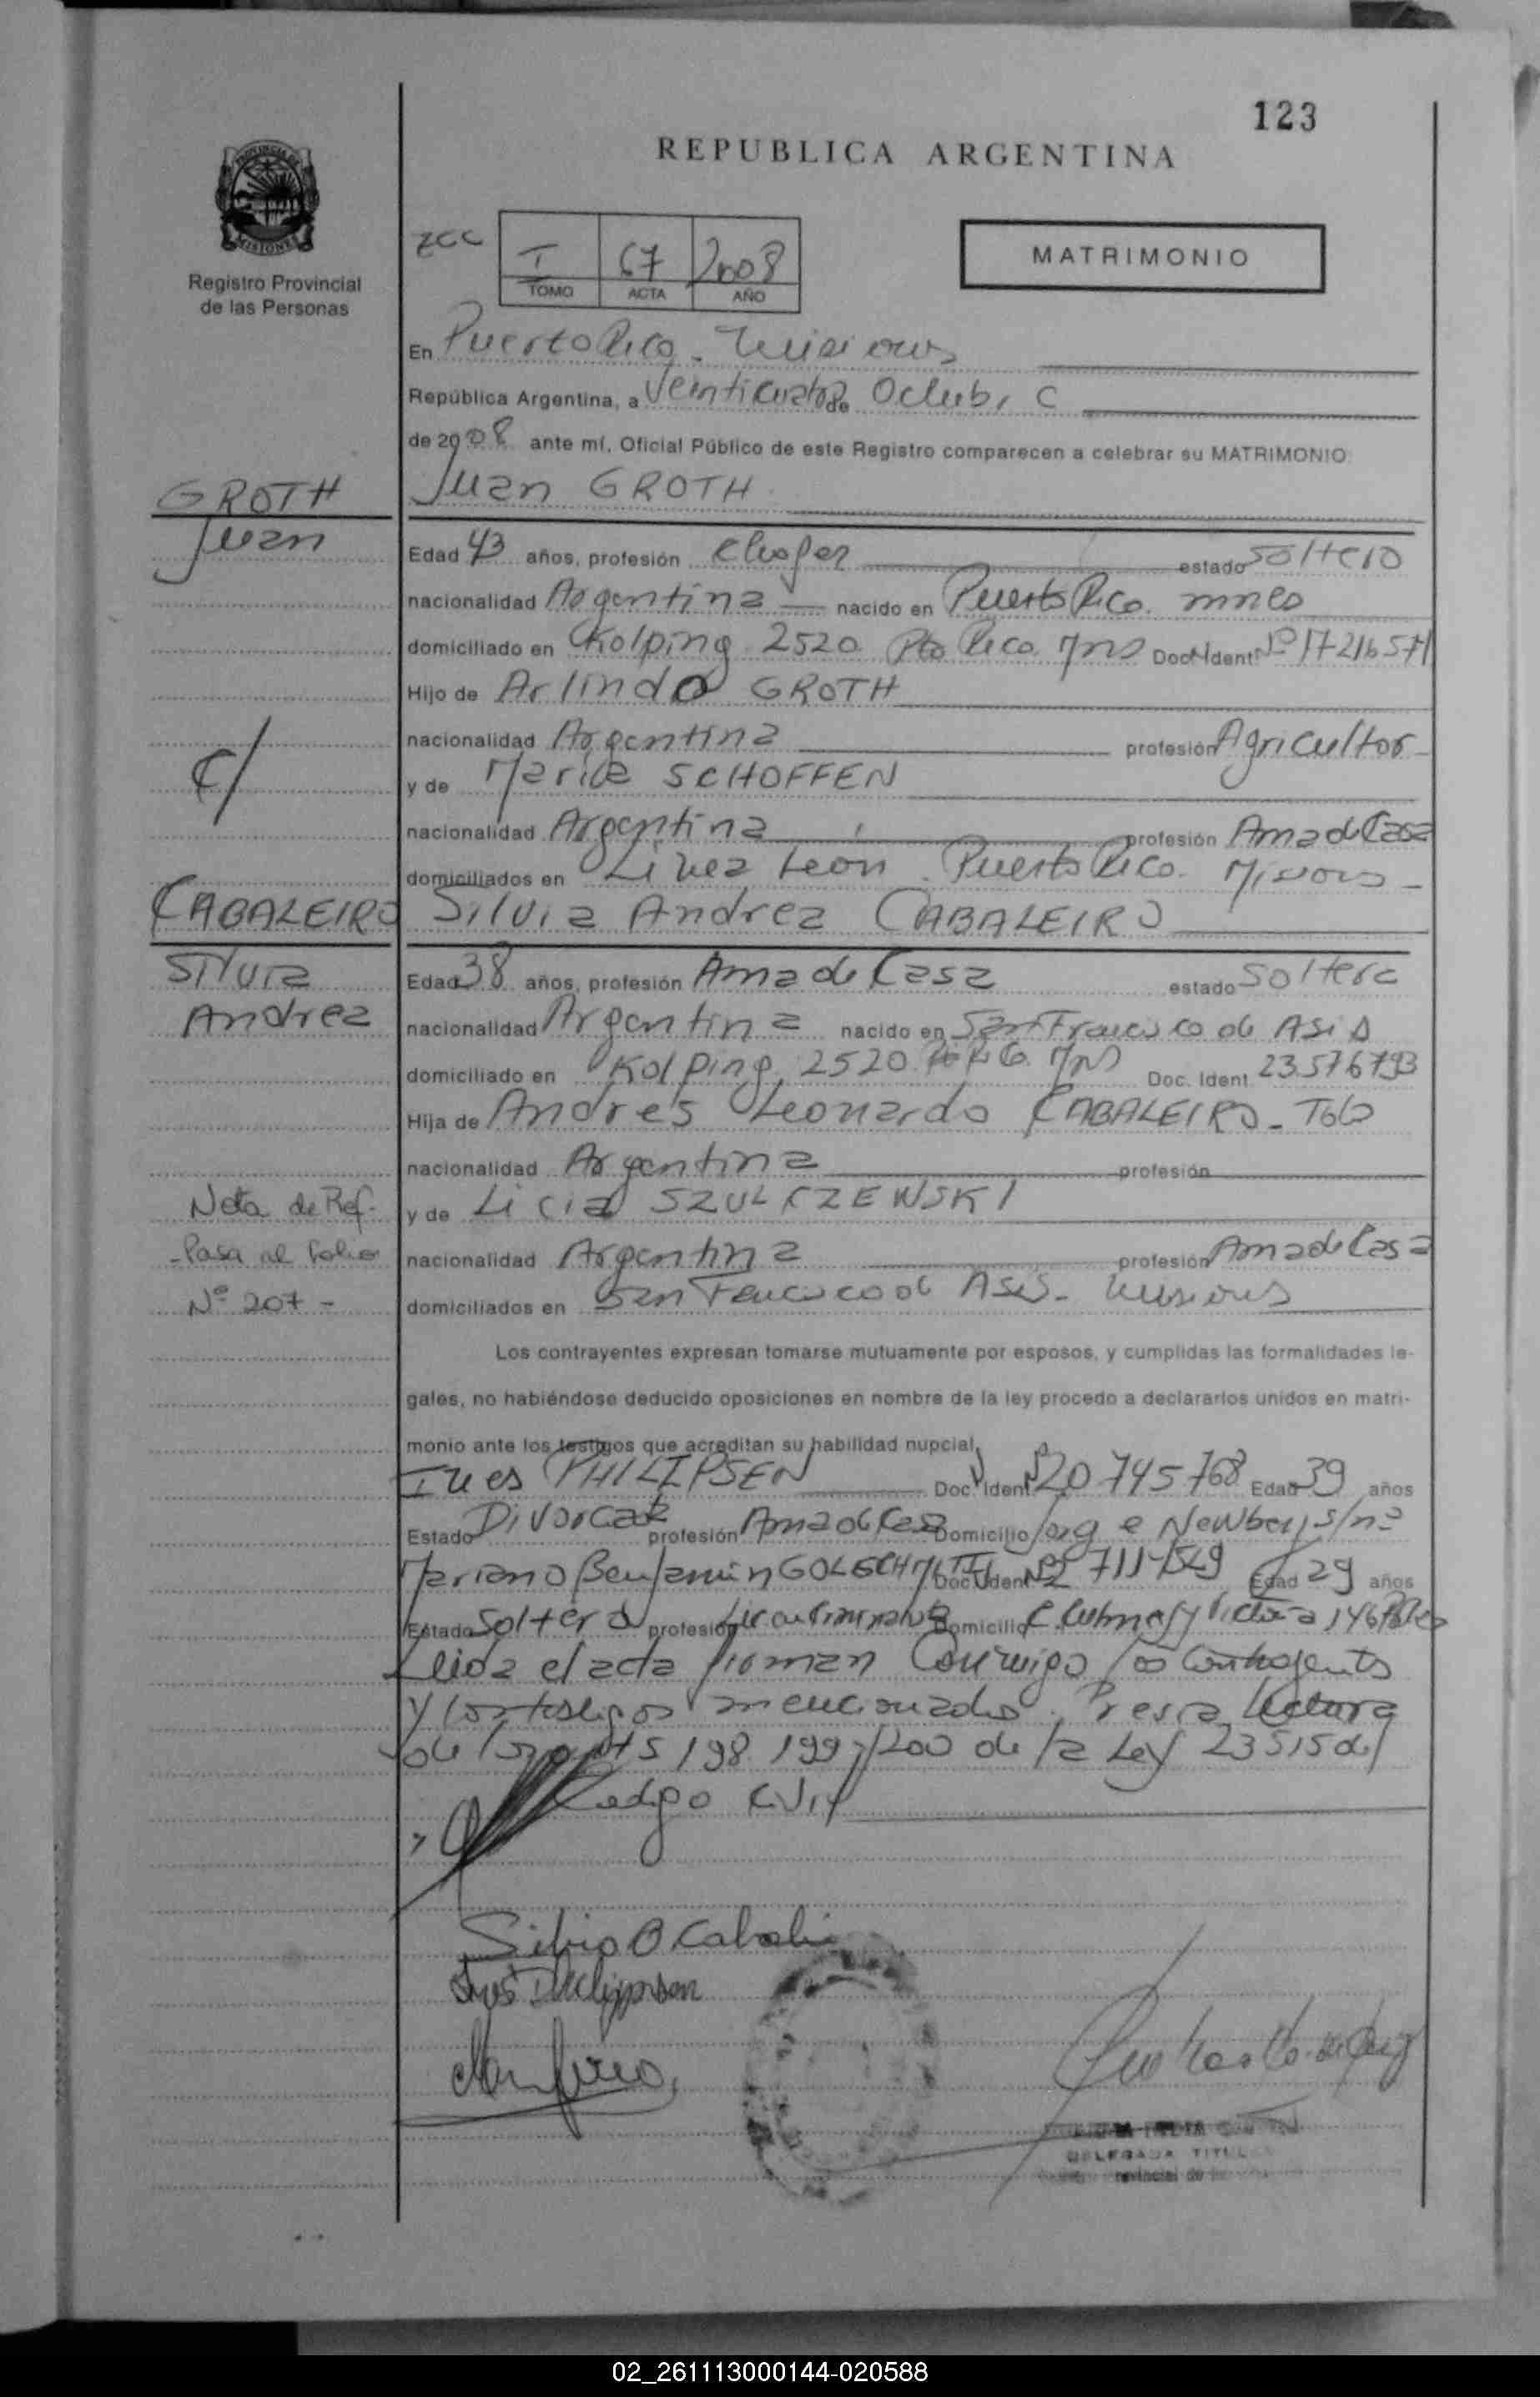 123
REPUBLICA ARGENTINA
PROVINCIA DE
MISIONES
Registro Provincial
de las Personas
ZCC
I 67 2008
TOMO ACTA AÑO
MATRIMONIO
En Puerto Rico - Misiones
República Argentina, a Veinticuatro de Octubre
de 2008 ante mí, Oficial Público de este Registro comparecen a celebrar su MATRIMONIO
GROTH Juan GROTH
Juan
Edad 43 años, profesión Chofer estado soltero
nacionalidad Argentina nacido en Puerto Rico. mnes
domiciliado en Kolping 2520 Pto Rico Mns Doc. Ident. Nº 17216571
Hijo de Arlindo GROTH
nacionalidad Argentina profesión Agricultor
c/
y de Maria SCHOFFEN
nacionalidad Argentina profesión Ama de Casa
domiciliados en Linea Leon. Puerto Rico. Misiones -
CABALEIRO Silvia Andrea CABALEIRO
Silvia
Edad 38 años, profesión Ama de Casa estado Soltera
Andrea
nacionalidad Argentina nacido en San Francisco de Asis
domiciliado en Kolping 2520 Pto Rico Mns Doc. Ident. 23.576793
Hija de Andres Leonardo CABALEIRO -
nacionalidad Argentina profesión
Nota de Ref.
y de Licia SZULCZEWSKI
- Pasa al folio
nacionalidad Argentina profesión Ama de Casa
Nº 207 -
domiciliados en San Francisco de Asis - Misiones
Los contrayentes expresan tomarse mutuamente por esposos, y cumplidas las formalidades le-
gales, no habiéndose deducido oposiciones en nombre de la ley procedo a declararlos unidos en matri-
monio ante los testigos que acreditan su habilidad nupcial,
Ines PHILIPSEN Doc. Ident. Nº 20745768 Edad 39 años
Estado Divorcada profesión Ama de Casa Domicilio Jorge Newbery s/nº
Mariano Benjamin Doc. Ident. Edad 29 años
Estado Soltero profesión Domicilio
Leida el acta firman Conmigo los Contrayentes
y los testigos mencionados. Previa Lectura
de los arts 198 199 y 200 de la Ley 23515 del
Codigo Civil
DELEGADA TITULAR
02_261113000144-020588